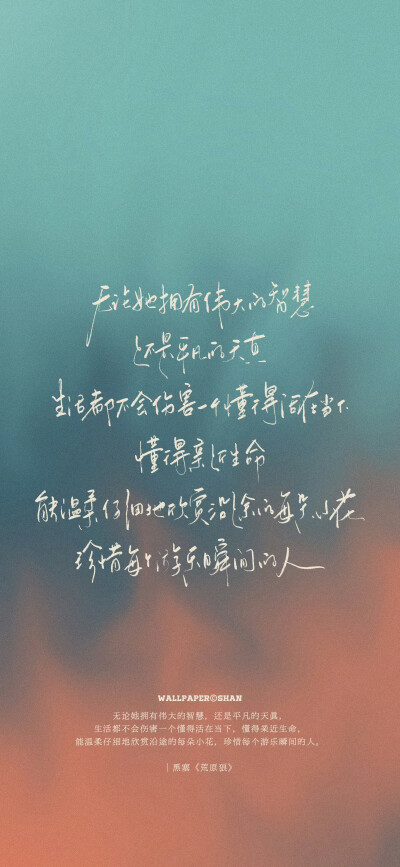 无论她拥有伟大的智慧
还是平凡的天真
生活都不会伤害一个懂得活在当下
懂得亲近生命
能温柔仔细地欣赏沿途的每朵小花
珍惜每个游乐瞬间的人
WALLPAPER©SHAN
无论她拥有伟大的智慧，还是平凡的天真，
生活都不会伤害一个懂得活在当下，懂得亲近生命，
能温柔仔细地欣赏沿途的每朵小花，珍惜每个游乐瞬间的人。
｜黑塞《荒原狼》